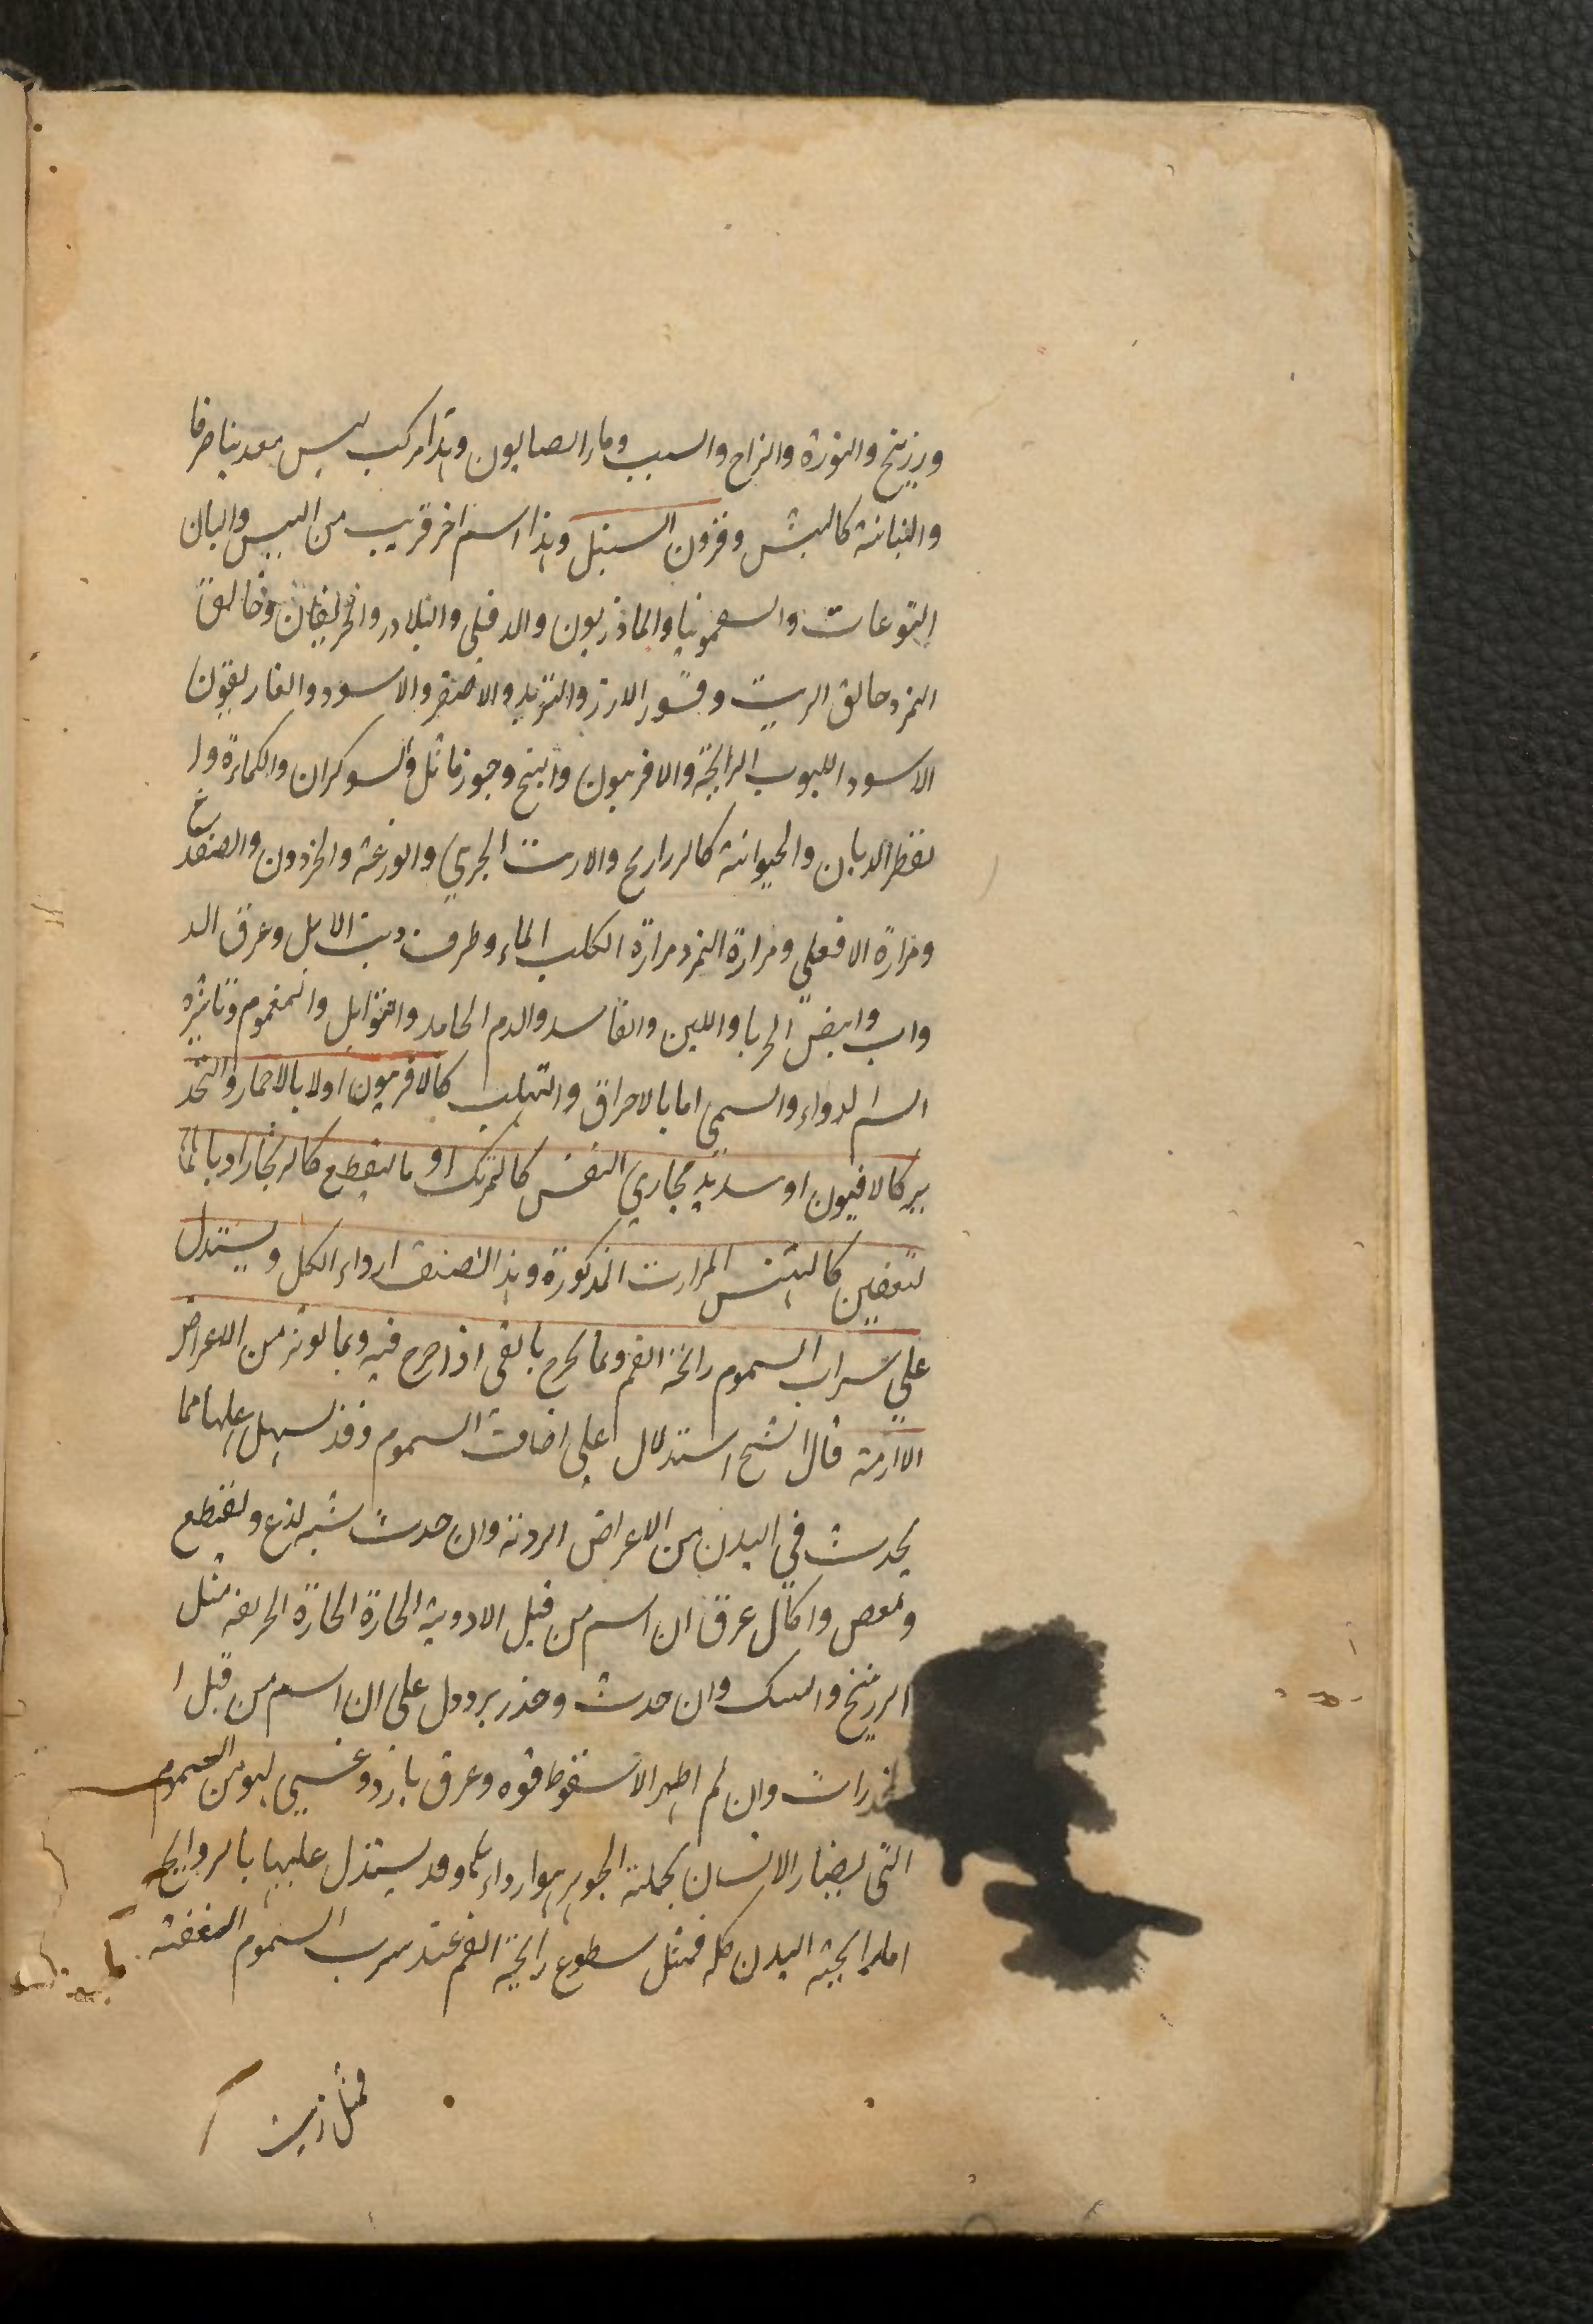 وزرنيخ والنورة والزاج والسبب وماء الصابون وهذا مركب ليس معدنيا صرفا
والنباتية كالبيش وقرون السنبل وهذا اسم اخر قريب من البيس والبان
اليتوعات والسقمونيا والماذريون والدفلى والبلادر والخربقان وخالق
النمر وخالق الريب وقشور الارز والتربد الاصفر والاسود والغاريقون
الاسود اللبوب الرايحة والافربيون والبنج وجوز ماثل والسوكران والكمارة وا
لفطر الديان والحيوانية كالرراريح والارنب البحري والوزغة والحرذون والضفدع
ومرارة الافعى ومرارة النمر ومرارة الكلب الماء وطرف ذنب الابل وعرق الد
واب وابيض الحربا واللبن والفاسد والدم الجامد والشوايل والمغموم وتاثيره
السم الدواء والسمى اما بالاحراق والتهلب كالافربيون اولا بالاحمار والتخد
ير كالافيون او سديد مجاري النفس كالمرتك او بالتقطع كالزنجار او بالتا
لتعفين كالبيش المرارت المذكورة وهذا الصنف ارداء الكل ويستدل
على شراب السموم رائحة الفم وبما يخرج بالقى اذا خرج فيه وبما لونه من الاعراض
الازمة قال الشيخ استدلال على اصناف السموم وقد يسهل عليها مما
يحدث في البدن من الاعراض الردية وان حدث شبه لذع وتقطع
ومغص واكال عرق ان السم من قبل الادوية الحارة الحارة الحريفه مثل
الزرنيخ والسك وان حدث وخدر برد ودل على ان السم من قبل ا
لمخدرات وان لم اظهر الا سقوط قوه وعرق بارد وغشى لهو من السموم
التى يضار الانسان بجملة الجوهر هوا رداءها وقد يستدل عليها بالروايح
اما رايحة البدن كله فمثل سطوع رايحة الفم عند سرب السموم المعفنه
فمثل زنيت